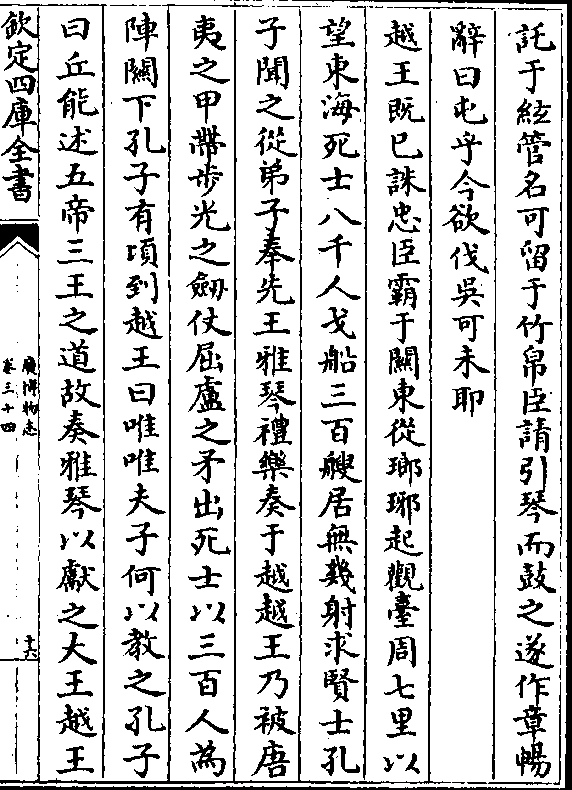 託于絃管名可留于竹帛臣請引琴而鼓之遂作章暢
辭曰屯乎今欲伐吳可未耶
越王既已誅忠臣霸于關東從瑯琊起觀臺周七里以
望東海死士八千人戈船三百艘居無幾射求賢士孔
子聞之從弟子奉先王雅琴禮樂奏于越越王乃被唐
夷之甲帶步光之劒仗屈盧之矛出死士以三百人為
陣關下孔子有頃到越王曰唯唯夫子何以教之孔子
曰丘能述五帝三王之道故奏雅琴以獻之大王越王
欽定四庫全書
廣博物志
卷三十四
十六